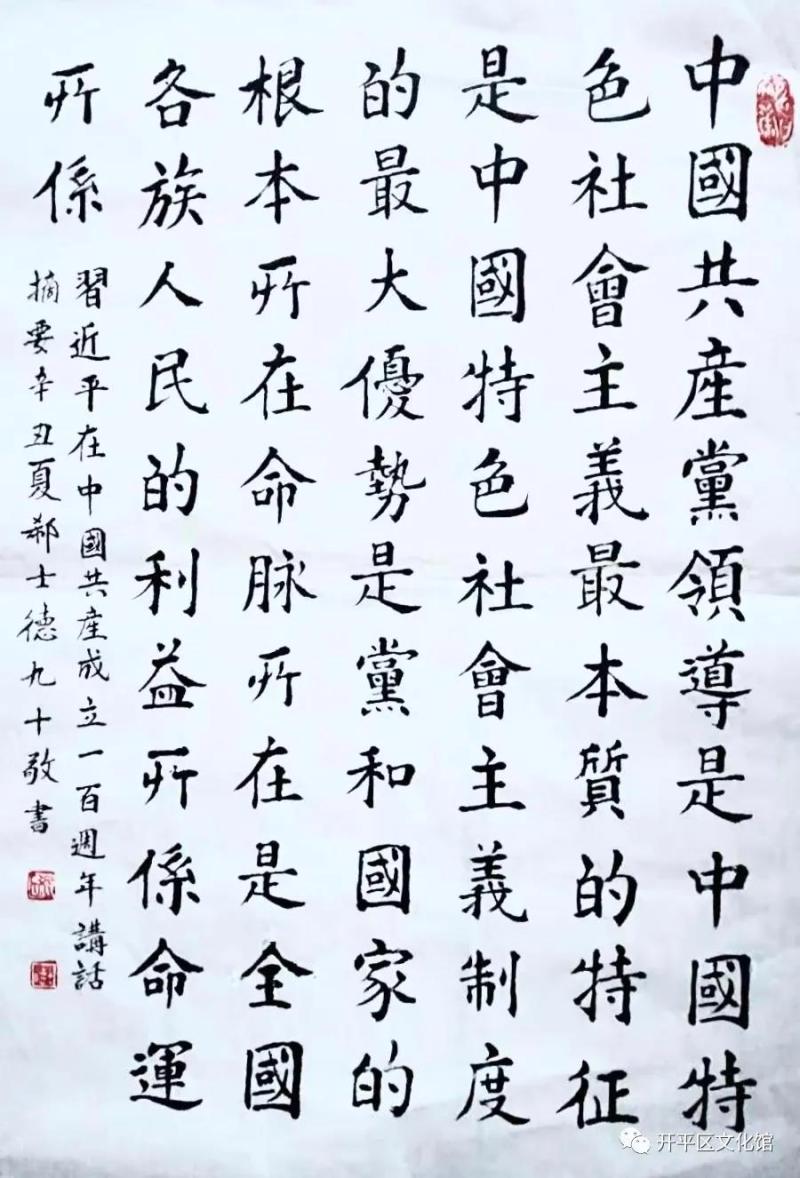 中國共産黨領導是中國特
色社會主義最本質的特征
是中國特色社會主義制度
的最大優勢是黨和國家的
根本所在命脉所在是全國
各族人民的利益所係命運
所係
習近平在中國共産成立一百週年講話
摘要辛丑夏郝士德九十敬書
开平区文化馆